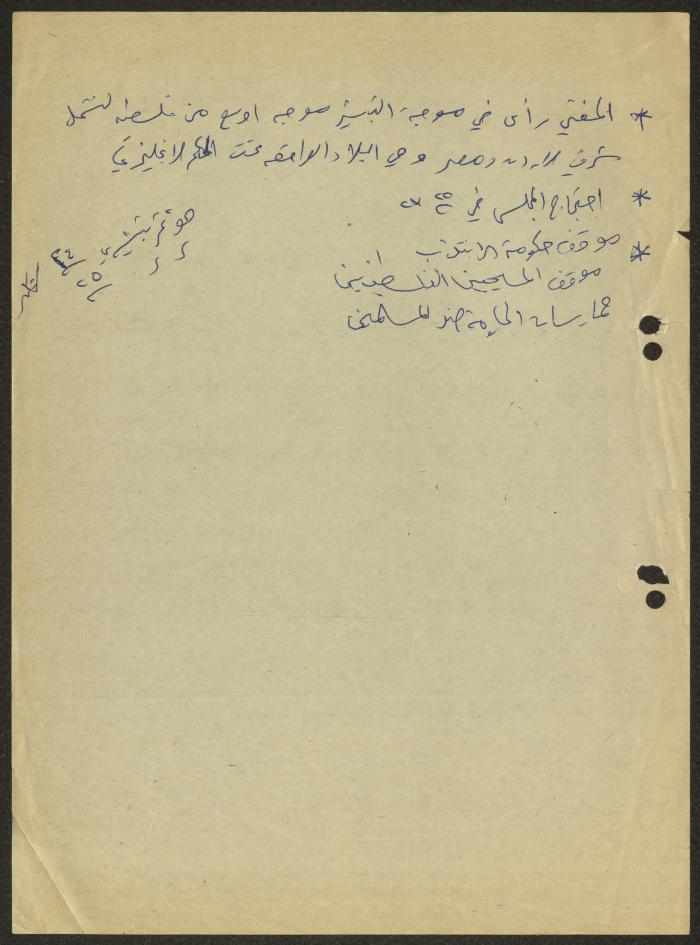 * المفتي رأى في موجة التبشير موجه اوسع من فلسطين لتشمل
شرقي الاردن ومصر وهي البلاد الواقعه تحت الحكم الانجليزي
* احتجاج المجلس في
* موقف حكومة الانتداب
موقف المسيحيين الفلسطينيين
ممارسات الحكومة ضد المسلمين
مؤتمر تبشيري